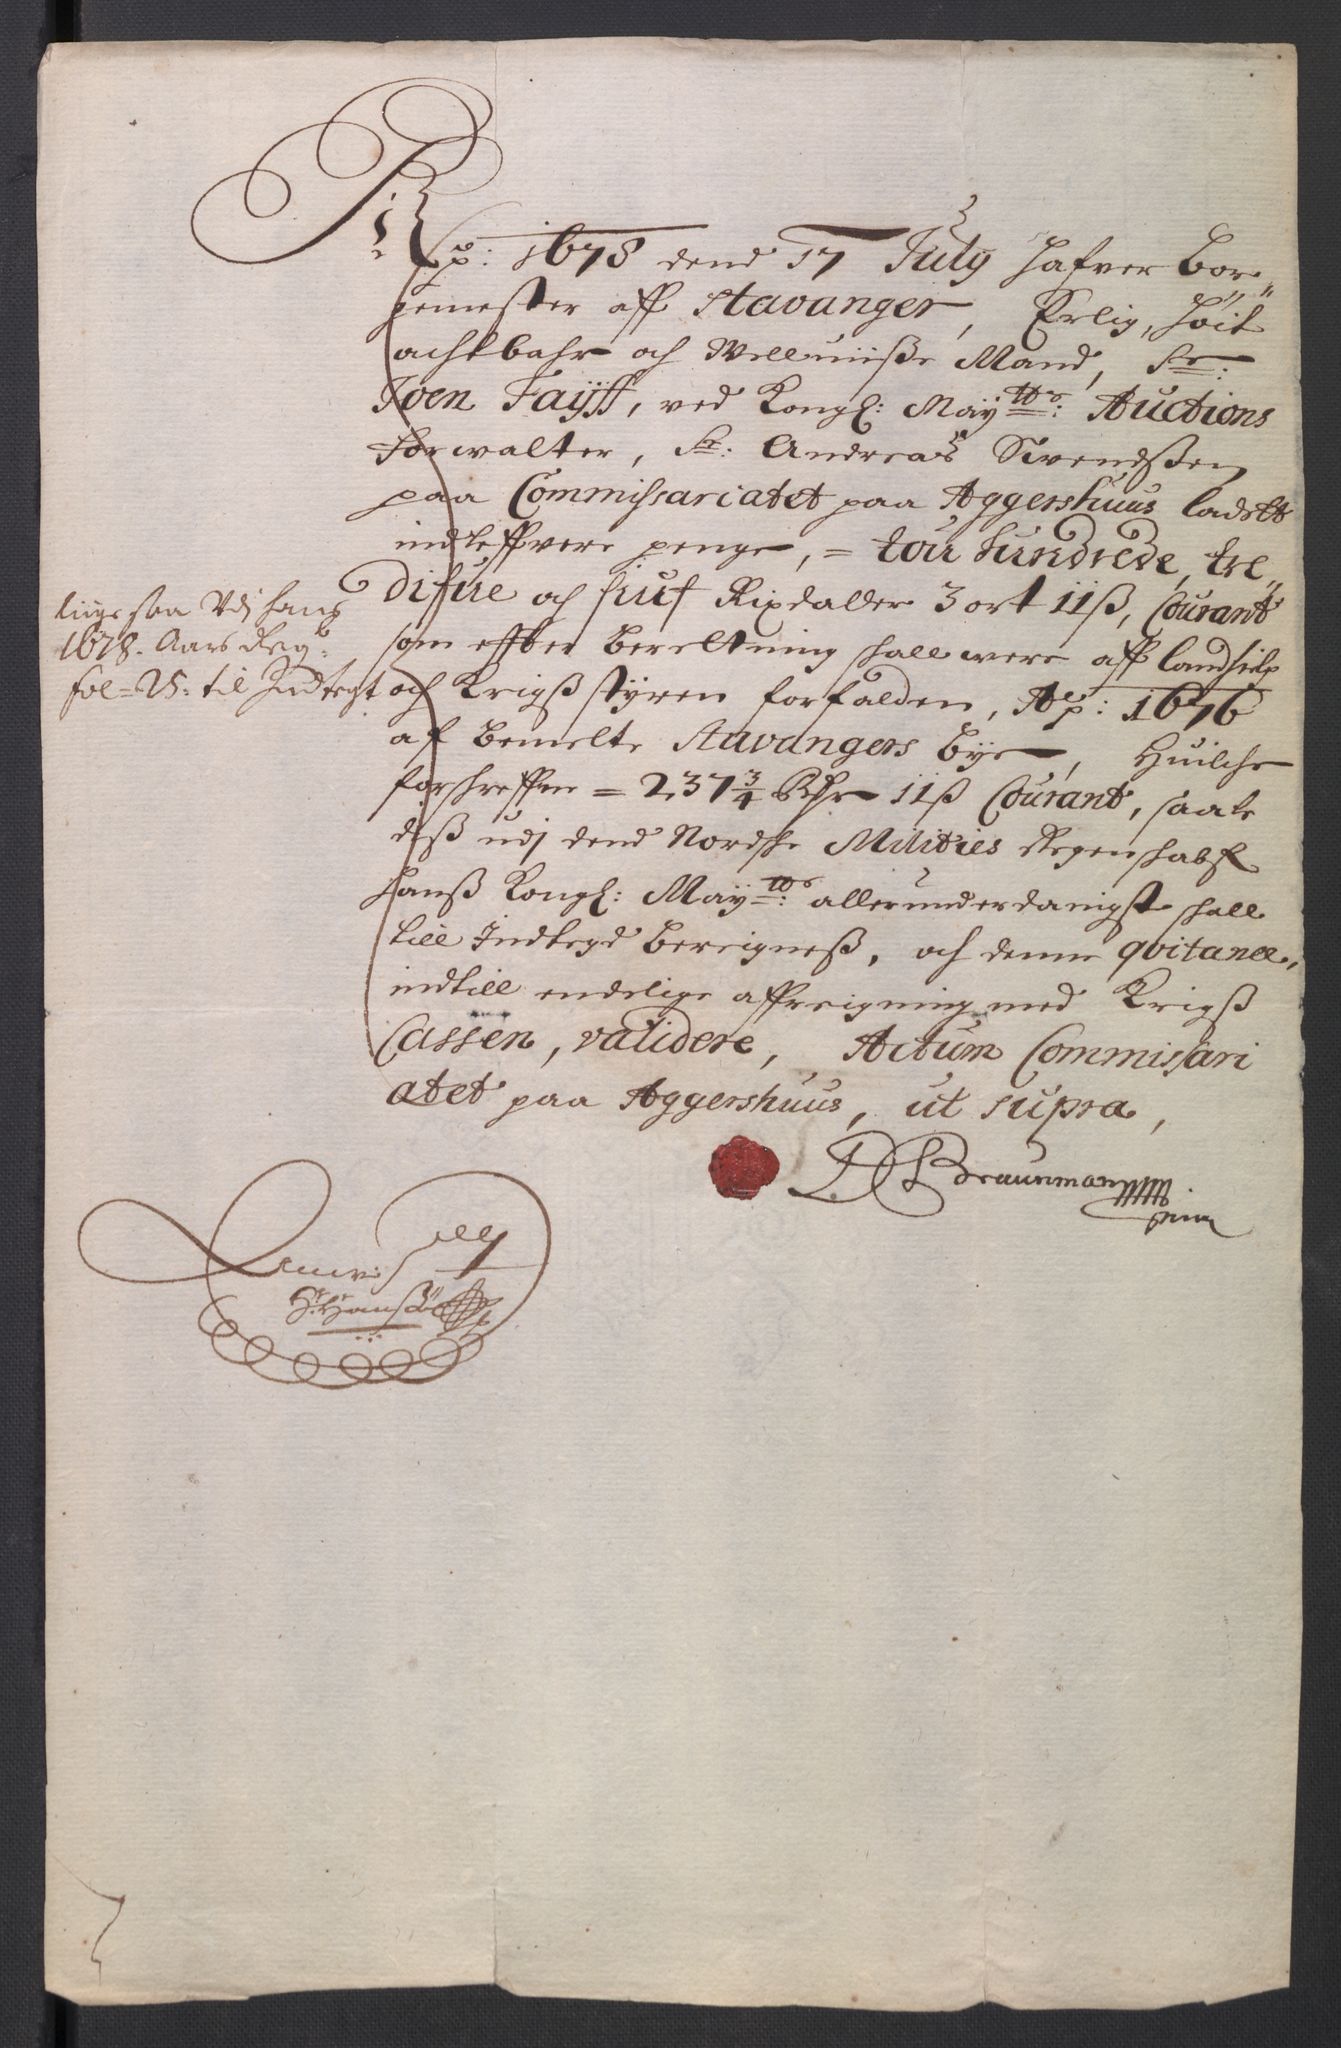 Ap: 1678 dend 17 July hafver Bor„
gemester aff Stavanger, Erlig, höit
achtbahr och Wellwiiße Mand, Sr:
Joen Fayff, ved Kongl: Mayttz: Auctions
forwalter, Sr: Andreas Svendßen
paa Commissariatet paa Aggershuus ladett
indleffvere penge, = tou hundrede, tre„
difue och siuf Rixdaller 3 ort 11ß, Courant
som effter beretning skall were aff landhielp
och Krigß styren forfalden, Ap: 1676
af bemelte Stavangers bye, Huilche
forskreffne = 237¾ Rdr 11ß Courant, saale
deß udj dend Nordske Milities Regenskabs
hanß Kongl: Mayttz: allerunderdanigst skall
till Indtegd bereigneß, och denne qvitance,
indtill endelige affreigning med Krigß
Cassen, validere, Actum Commissari
atet paa Aggershuus, ut supra,
liigesaa Udj hans
1678. Aars Reg:
fol = 25: til Indtegt
D Braunman